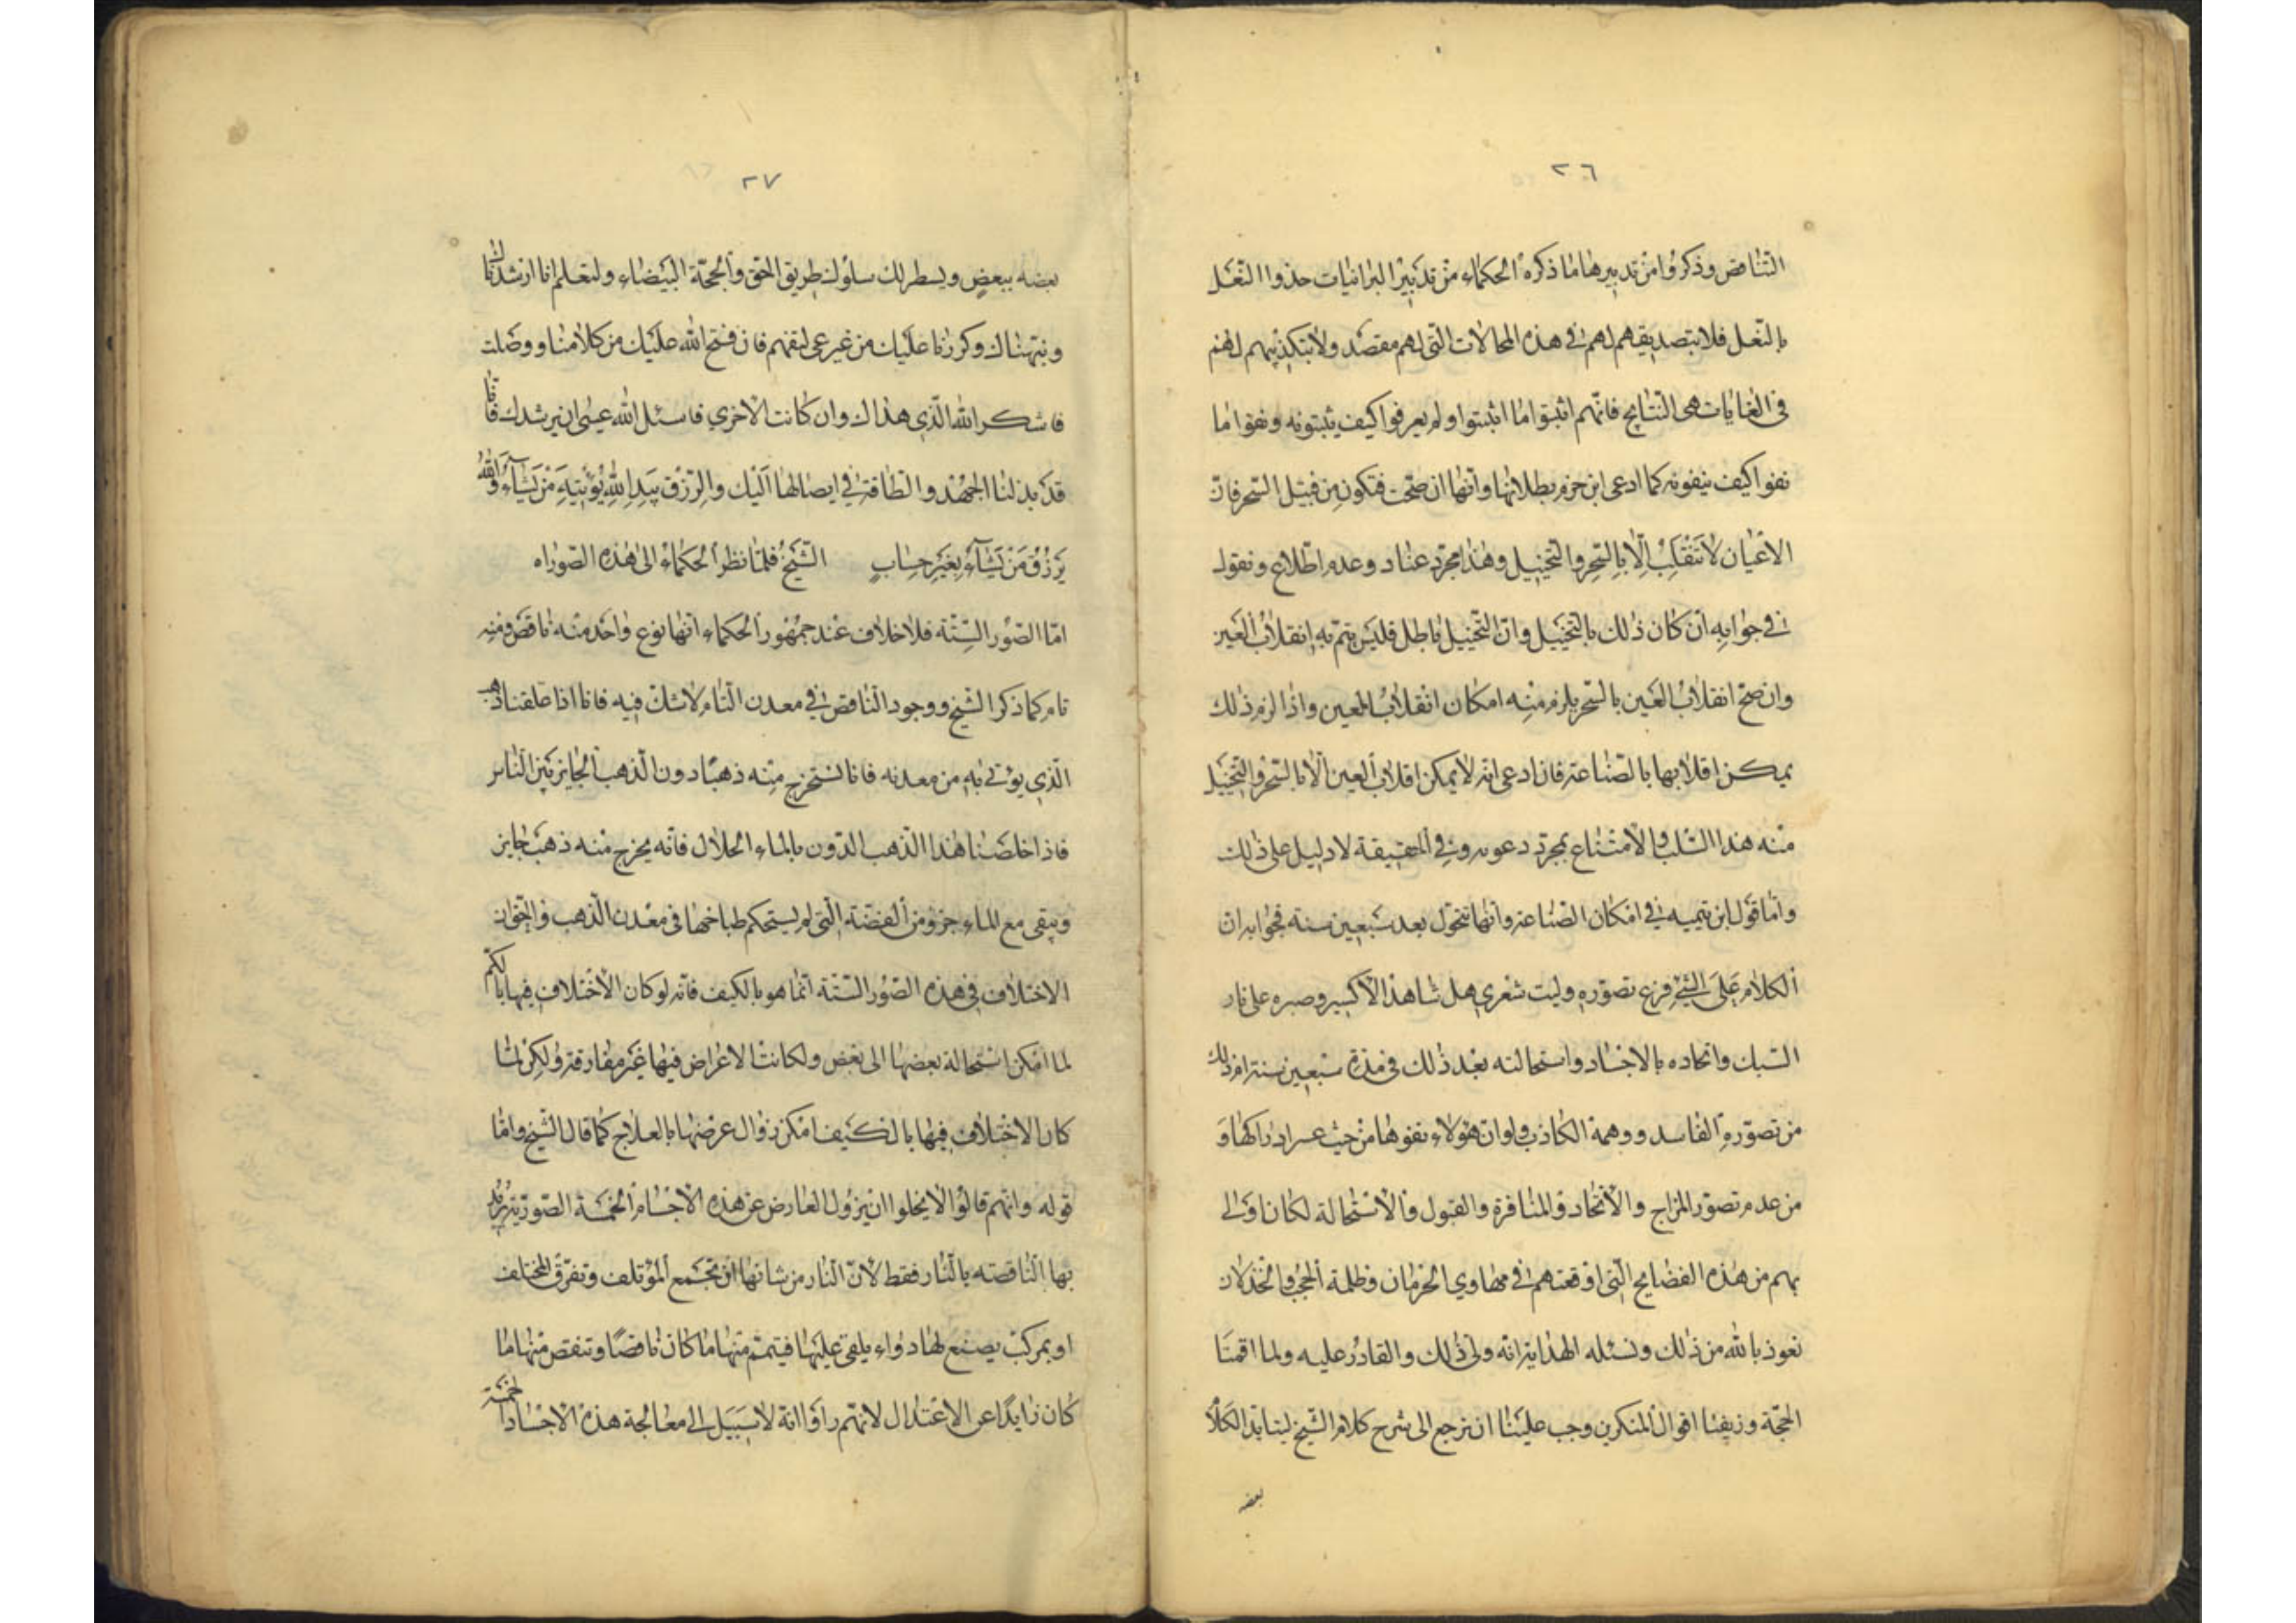 ٢٦
التناقض وذكروا من تدبيرها ما ذكره الحكماء من تدبير البرانيات حذوا النعل
بالنعل فلا بتصديقهم لهم في هذه المحالات التي لهم مقصد ولا بتكذيبهم لهم
في الغايات هي النتايج فانهم اثبتوا ما اثبتوا ولم يعرفوا كيف يثبتونه ونفوا ما
نفوا كيف ينفونه كما ادعى ابن حزم بطلانها وانها ان صحت فتكون من قبيل السحر فان
الاعيان لا تنقلب الا بالسحر والتخييل وهذا مجرد عناد وعدم اطلاع ونقول
في جوابه ان كان ذلك بالتخييل وان التخييل باطل فليس يتم به انقلاب العين
وان صح انقلاب العين بالسحر يلزم منه امكان انقلاب العين واذا لزم ذلك
يمكن اقلابها بالصناعة فان ادعى انه لا يمكن اقلاب العين الا بالسحر والتخييل
منه هذا السلب والامتناع بمجرد دعوىه وفي الحقيقة لا دليل على ذلك
واما قول ابن تيميه في امكان الصناعة وانها تتحول بعد سبعين سنة فجوابه ان
الكلام على الشيء فرع تصوره وليت شعري هل شاهد الاكسير وصبره على نار
السبك واتحاده بالاجساد واستحالته بعد ذلك في مدة سبعين سنة ام ذلك
من تصوره الفاسد ووهمه الكاذب ولو ان هؤلاء نفوها من حيث عسر ادراكها و
من عدم تصور المزاج والاتحاد والمنافرة والقبول والاستحالة لكان اولى
بهم من هذه الفضايح التي اوقعتهم في مهاوي الحرمان وظلمة الحجب والخذلان
نعوذ بالله من ذلك ونسئله الهداية انه ولي ذلك والقادر عليه ولما اقمنا
الحجة وزيفنا اقوال المنكرين وجب علينا ان نرجع الى شرح كلام الشيخ ليتايد الكلام
بعضه
٢٧
بعضه ببعض ويسطر لك سلوك طريق الحق والحجة البيضاء ولتعلم انا ارشدناك
ونبهناك وكررنا عليك من غير عي لتفهم فان فتح الله عليك من كلامنا ووصلت
فاشكر الله الذي هداك وان كانت الاخرى فاسئل الله عسى ان يرشدك فانا
قد بذلنا الجهد والطاقة في ايصالها اليك والرزق بيد الله يؤتيه من يشآء والله
يرزق من يشآء بغير حساب الشيخ فلما نظر الحكماء الى هذه الصور اه
اما الصور الستة فلا خلاف عند جمهور الحكماء انها نوع واحد منه ناقص ومنه
تام كما ذكر الشيخ ووجود الناقص في معدن التام لا شك فيه فانا اذا علقنا ذهب
الذي يؤتى به من معدنه فانا نستخرج منه ذهبا دون الذهب الجايز بين الناس
فاذا خلصنا هذا الذهب الدون بالماء الحلال فانه يخرج منه ذهب جايز
ويبقى مع الماء جزو من الفضة التي لم يستحكم طباخها في معدن الذهب والحق ان
الاختلاف في هذه الصور الستة انما هو بالكيف فانه لو كان الاختلاف فيها بالكم
لما امكن استحالة بعضها الى بعض ولكانت الاعراض فيها غير مفارقة ولكن لما
كان الاختلاف فيها بالكيف امكن زوال عرضها بالعلاج كما قال الشيخ واما
قوله وانهم قالوا لا يخلوا ان يزول العارض عن هذه الاجسام الخمسة الصور يريد
بها الناقصه بالنار فقط لان النار من شانها ان تجمع المؤتلف وتفرق المختلف
او بمركب يصنع لها دواء يلقى عليها فيتم منها ما كان ناقصا وتنقص منها ما
كان زايدا عن الاعتدال لانهم راوا انه لا سبيل الى معالجة هذه الاجساد الخمسة